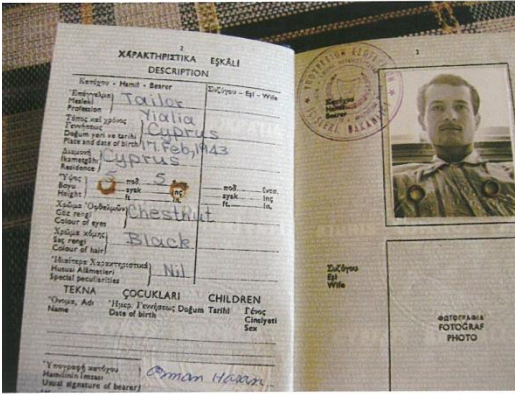 2
ΧΑΡΑΚΤΗΡΙΣΤΙΚΑ EŞKÂLİ
DESCRIPTION
Κατόχου - Hamil - Bearer
Συζύγου - Eşi - Wife
Ἐπάγγελμα
Mesleki
Profession
Tailor
Τόπος καὶ χρόνος
Γεννήσεως
Doğum yeri ve tarihi
Place and date of birth
Yialia
Cyprus
17. Feb, 1943
Διαμονὴ
İkametgâhı
Residence
Cyprus
Ὕψος
Boyu
Height
5 ποδ. 5
ayak inç
ft. in.
ποδ.
ayak inç
ft. in.
Χρῶμα Ὀφθαλμῶν
Göz rengi
Colour of eyes
Chestnut
Χρῶμα κόμης
Saç rengi
Colour of hair
Black
Ἰδιαίτερα Χαρακτηριστικὰ
Hususi Alâmetleri
Special peculiarities
Nil
ΤΕΚΝΑ ÇOCUKLARI CHILDREN
Ὄνομα, Adı
Name
Ἡμερ. Γεννήσεως Doğum Tarihi
Date of birth
Γένος
Cinsiyeti
Sex
Ὑπογραφὴ κατόχου
Hamilinin İmzası
Usual signature of bearer
Osman Hasan
3
Bearer
Συζύγου
Eşi
Wife
ΦΩΤΟΓΡΑΦΙΑ
FOTOĞRAF
PHOTO